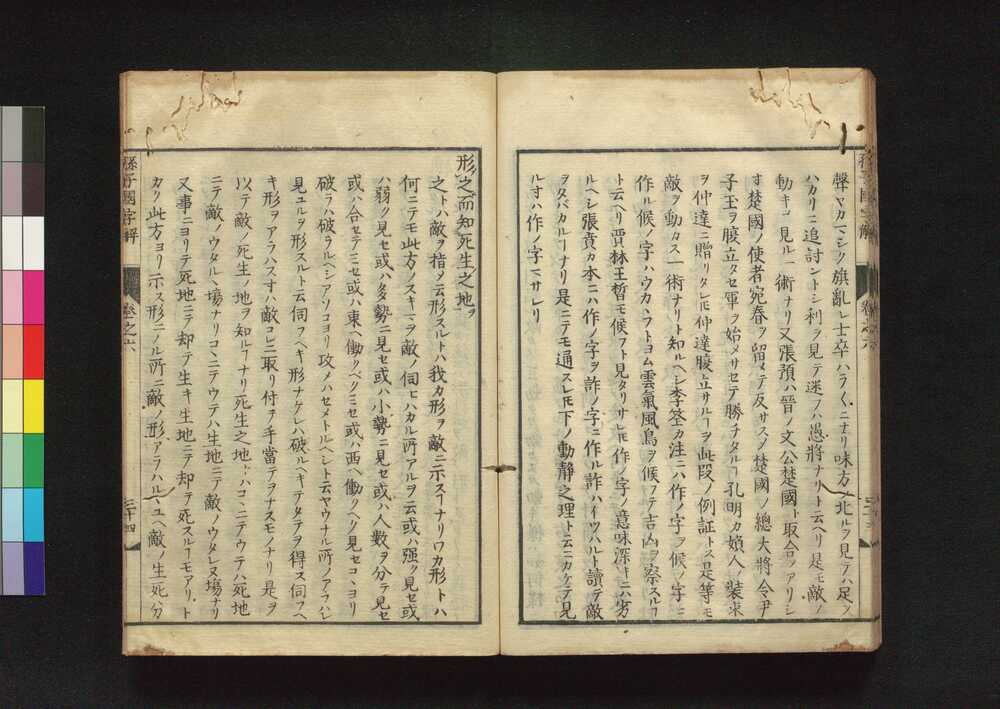 聲ヤカマシク旗亂レ士卒ハラ〱ニナリ味方ノ北ルヲ見テハ足ヲ
ハカリニ追討ントシ利ヲ見テ迷フハ愚將ナリト云ヘリ是モ敵ノ
動キヲ見ル一術ナリ又張預ハ晉ノ文公楚國ト取合アリシ
寸楚國ノ使者宛春ヲ留メテ反サスノ楚國ノ總大將令尹
子玉ヲ腹立タセ軍ヲ始メサセテ勝チタルヿ孔明カ婦人ノ装束
ヲ仲達ニ贈リタレ𪜈仲達腹立サルヿヲ此段ノ例証トス是等モ
敵ヲ動カス一術ナリト知ルヘシ李筌カ注ニハ作ノ字ヲ候ノ字ニ
作ル候ノ字ハウカヽフトヨム雲氣風鳥ヲ候フテ吉凶ヲ察スルヿ
ト云ヘリ賈林王晳モ候フト見タリサレ𪜈作ノ字ノ意味深キニハ劣
ルヘシ張賁カ本ニハ作ノ字ヲ詐ノ字ニ作ル詐ハイツハルト讀テ敵
ヲタバカルヿナリ是ニテモ通スレ𪜈下ノ動靜之理ト云ニカケテ見
ル寸ハ作ノ字マサレリ
形之而知死生之地ヲ
之トハ敵ヲ指メ云形スルトハ我カ形ヲ敵ニ示スヿナリワカ形トハ
何ニテモ此方ノスキマヲ敵ノ伺ヒハカル所アルヲ云或ハ强ク見セ或
ハ弱ク見セ或ハ多勢ニ見セ或ハ小勢ニ見セ或ハ人數ヲ分テ見セ
或ハ合セテミセ或ハ東ヘ働クベクミセ或ハ西ヘ働クヘク見セコヽヨリ
破ラハ破ラルヘシアソコヨリ攻メハセメトルヘシト云ヤウナル所ノアラハレ
見ユルヲ形スルト云伺フヘキ形ナケレハ破ルヘキテタテヲ得ス伺フヘ
キ形ヲアラハス寸ハ敵コレニ取リ付ヲ手當テヲナスモノナリ是ヲ
以テ敵ノ死生ノ地ヲ知ルヿナリ死生之地トハコヽニテウテハ死地
ニテ敵ノウタルヽ場ナリコヽニテウテハ生地ニテ敵ノウタレヌ場ナリ
又事ニヨリテ死地ニテ却テ生キ生地ニテ却テ死スルヿモアリト
カク此方ヨリ示ス形ニノル所ニ敵ノ形アラハルヽユヘ敵ノ生死分
孫子國字解
卷之六
二十四